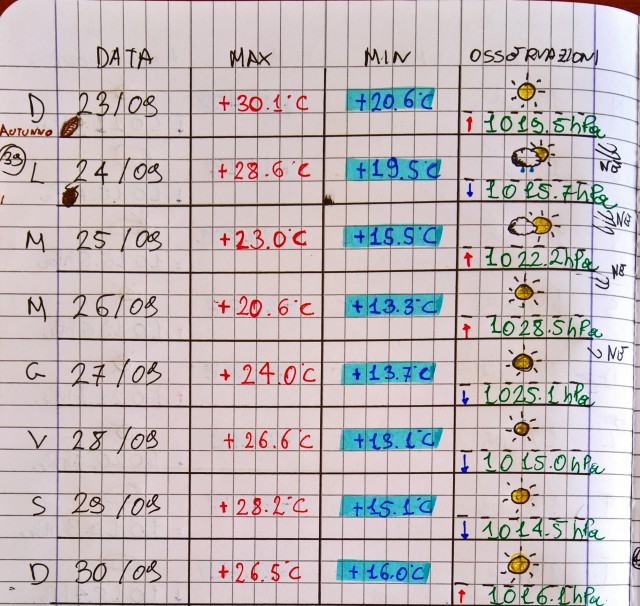 DATA MAX MIN OSSERVAZIONI
D 23/09 +30.1°C +20.6°C
AUTUNNO ↑ 1019.5hPa
39 L 24/09 +28.6°C +19.5°C
↓ 1015.7hPa NE
M 25/09 +23.0°C +15.5°C NE
↑ 1022.2hPa
M 26/09 +20.6°C +13.3°C NE
↑ 1028.5hPa
G 27/09 +24.0°C +13.7°C NE
↓ 1025.1hPa
V 28/09 +26.6°C +13.1°C
↓ 1015.0hPa
S 29/09 +28.2°C +15.1°C
↓ 1014.5hPa
D 30/09 +26.5°C +16.0°C
↑ 1016.1hPa